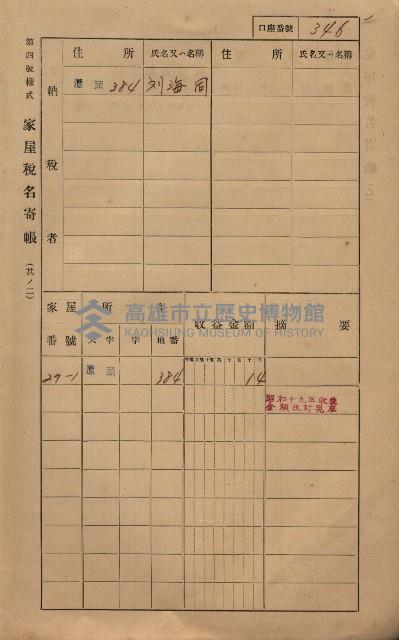 口座番號 346
第四號樣式
家屋稅名寄帳
(其ノ二)
納稅者
住所 氏名又ハ名稱 住所 氏名又ハ名稱
灣頭 384 刘海同
家屋所在 收益金額 摘要
番號 大字 字 地番
29-1 灣頭 384 14
昭和十九年收益
金額改訂現在
高雄市立歷史博物館
KAOHSIUNG MUSEUM OF HISTORY